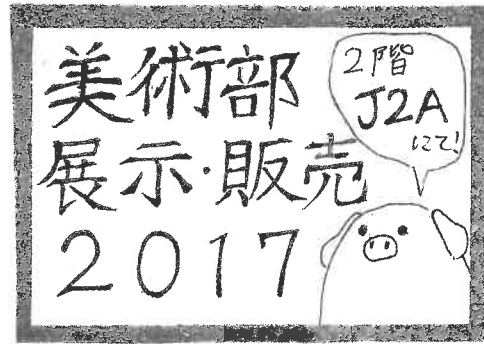 美術部
展示・販売
2017
2階
J2A
にて!